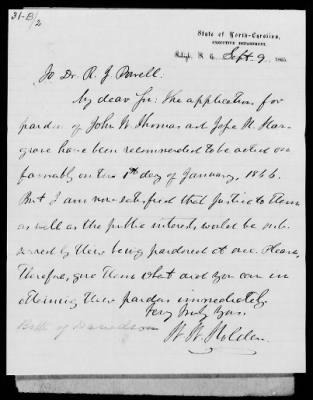 31-B/2
State of North-Carolina,
EXECUTIVE DEPARTMENT,
Raleigh, N. C. Sept. 9, 1865.
To Dr. R. J. Powell:
My dear Sir: The applications for
pardon of John W. Thomas and Jesse H. Har-
grove have been recommended to be acted on
favorably on the 1st day of January, 1866.
But I am now satisfied that justice to them
as well as the public interest, would be sub-
served by their being pardoned at once. Please,
therefore, give them what aid you can in
obtaining their pardon immediately.
Very truly yours,
Both of Davidson
W. W. Holden.